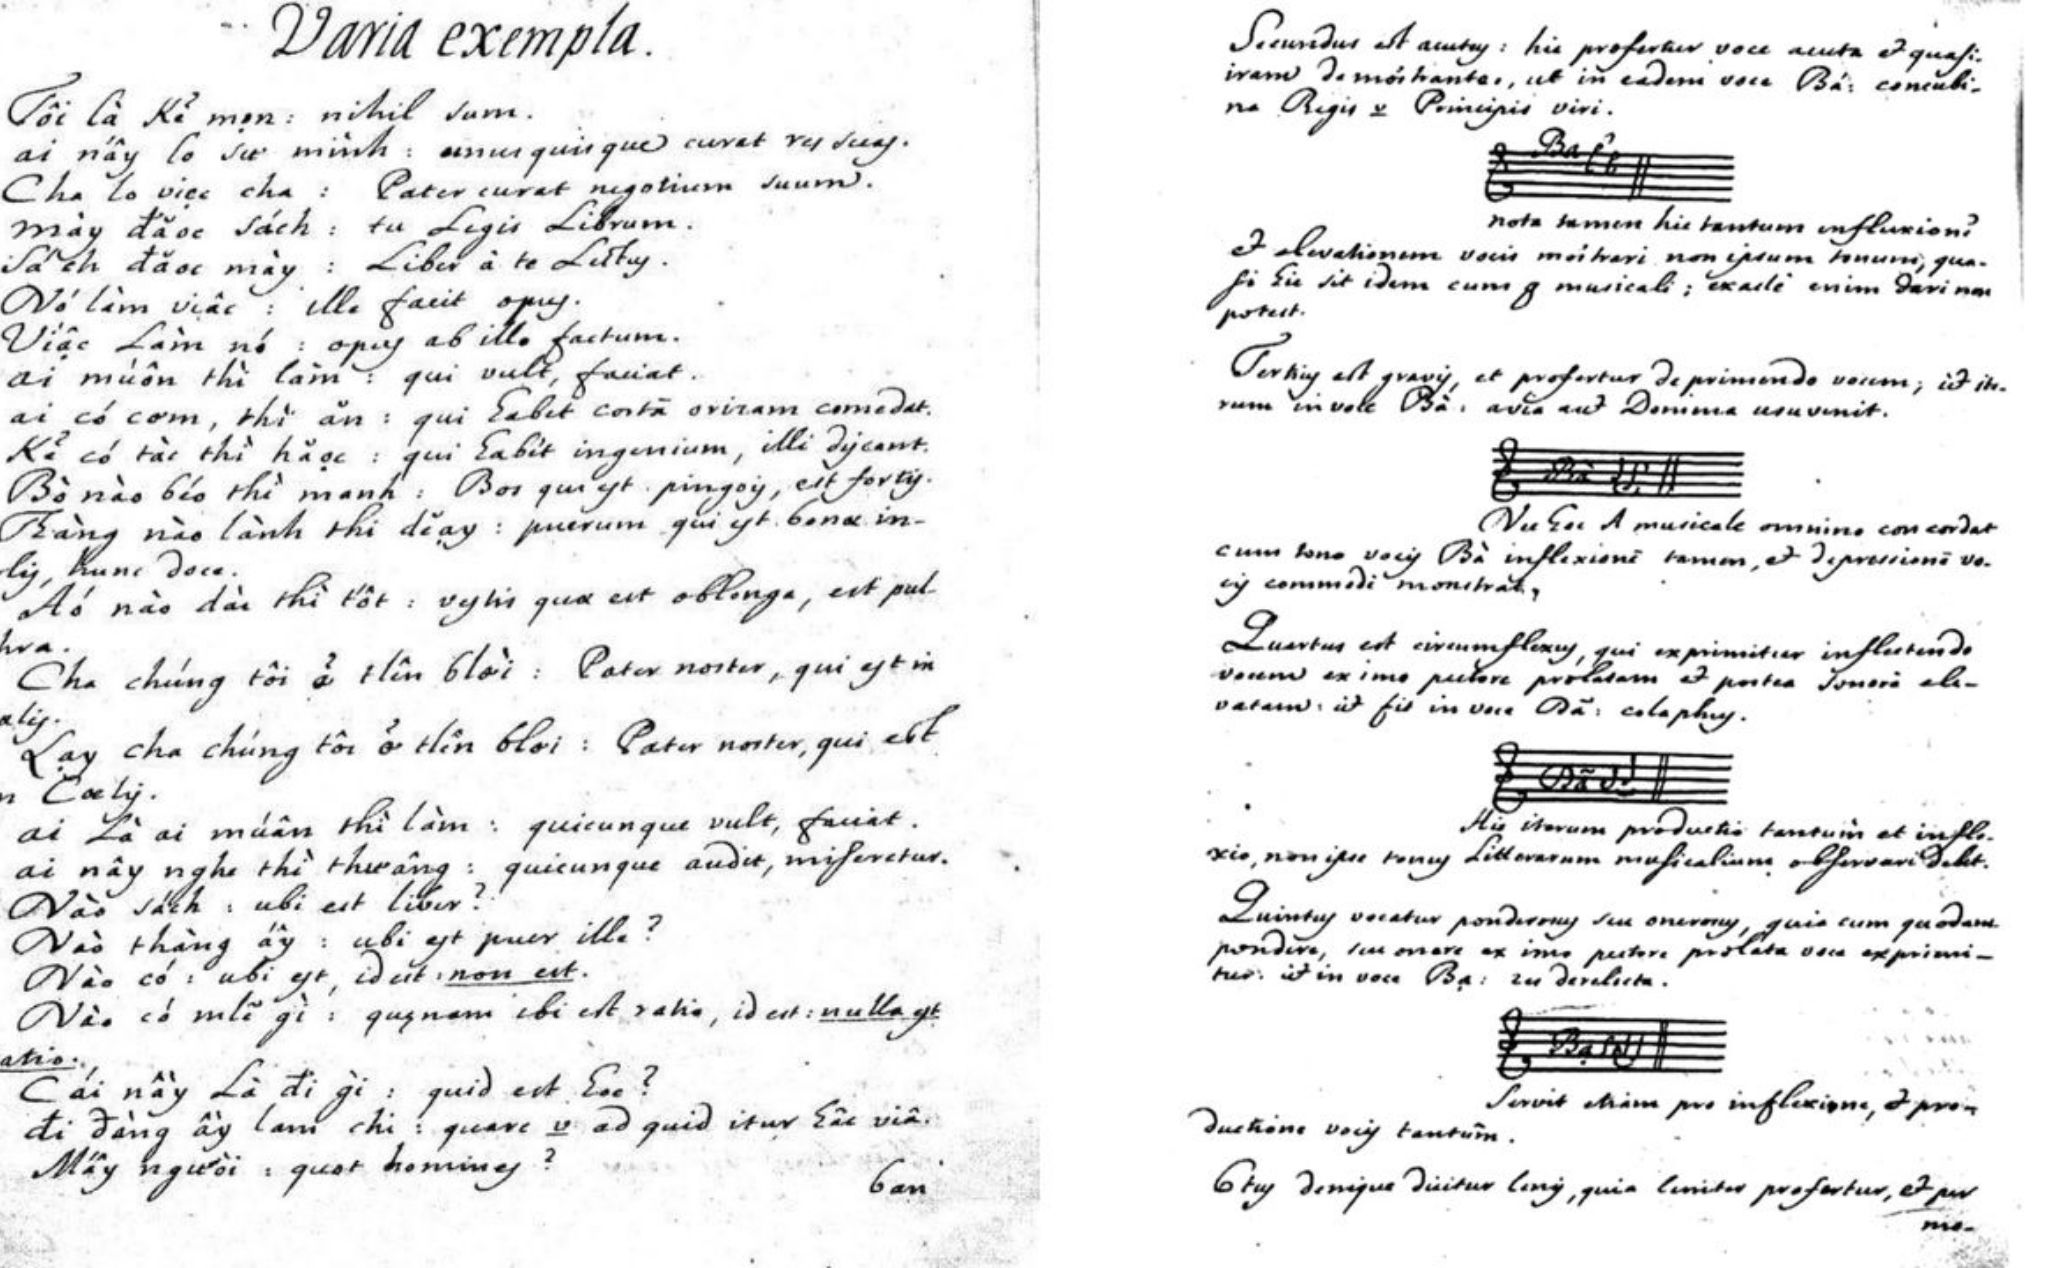 Varia exempla.
Tôi là Kẻ mọn: nihil sum.
ai nấy lo sự mình: unusquisque curat res suas.
Cha lo việc cha: Pater curat negotium suum.
mày đăọc sách: tu Legis Librum.
Sách đăọc mày: Liber à te Lectus.
Nó làm viâc: ille facit opus.
Viậc Làm nó: opus ab illo factum.
ai múôn thì làm: qui vult, faciat.
ai có cơm, thì ăn: qui habet coctā orizam comedat.
Kẻ có tài thì hăọc: qui habet ingenium, illi discant.
Bò nào béo thì manh: Bos qui est pinguis, est fortis.
Thàng nào lành thì dĕạy: puerum qui est bonæ in-
lis, hunc doce.
Aó nào dài thì tốt: vestis quæ est oblonga, est pul-
hra.
Cha chúng tôi ở tlên blời: Pater noster, qui est in
ælis.
Lạy cha chúng tôi ở tlên blơi: Pater noster, qui est
n Cælis.
ai Là ai múân thì làm: quicunque vult, faciat.
ai nấy nghe thì thương: quicunque audit, miseretur.
Nào sách: ubi est liber?
Nào thàng ấy: ubi est puer ille?
Nào có: ubi est, id est: non est.
Nào có mlẽ gì: quænam ibi est ratio, id est: nulla est
atio.
Cái nầy Là đi gì: quid est hoc?
đi đàng ấy lam chi: quare v ad quid itur hâc viâ.
Mấy người: quot homines?
ban
Secundus est acutus: hic profertur voce acuta et quasi
iram demónstrante, ut in eadem voce Bá: concubi-
na Regis v Principis viri.
Ba
nota tamen hic tantum inflexionē
et elevationem vocis móstrari non ipsum tonum, qua-
si hic sit idem cum g musicali; exactè enim dari non
potest.
Tertius est gravis, et profertur deprimendo vocem; ut ite-
rum in voce Bà: avia aut Domina usuvenit.
Bà
Nec hoc A musicale omnino concordat
cum tono vocis Bà inflexionē tamen, et depressionē vo-
cis commodè monstrat.
Quartus est circumflexus, qui exprimitur inflectendo
vocem ex imo pectore prolatam et postea sonorè ele-
vatam: ut fit in voce Bã: colaphus.
Bã
Hic iterum productio tantùm et infle-
xio, non ipse tonus Litterarum musicalium observari debet.
Quintus vocatur ponderosus seu onerosus, quia cum quodam
pondere, seu onere ex imo pectore prolata voce exprimi-
tur: ut in voce Bạ: res derelicta.
Bạ
Servit etiam pro inflexione, et pro-
ductione vocis tantùm.
6tus denique dicitur lenis, quia leniter profertur, et per
mo-